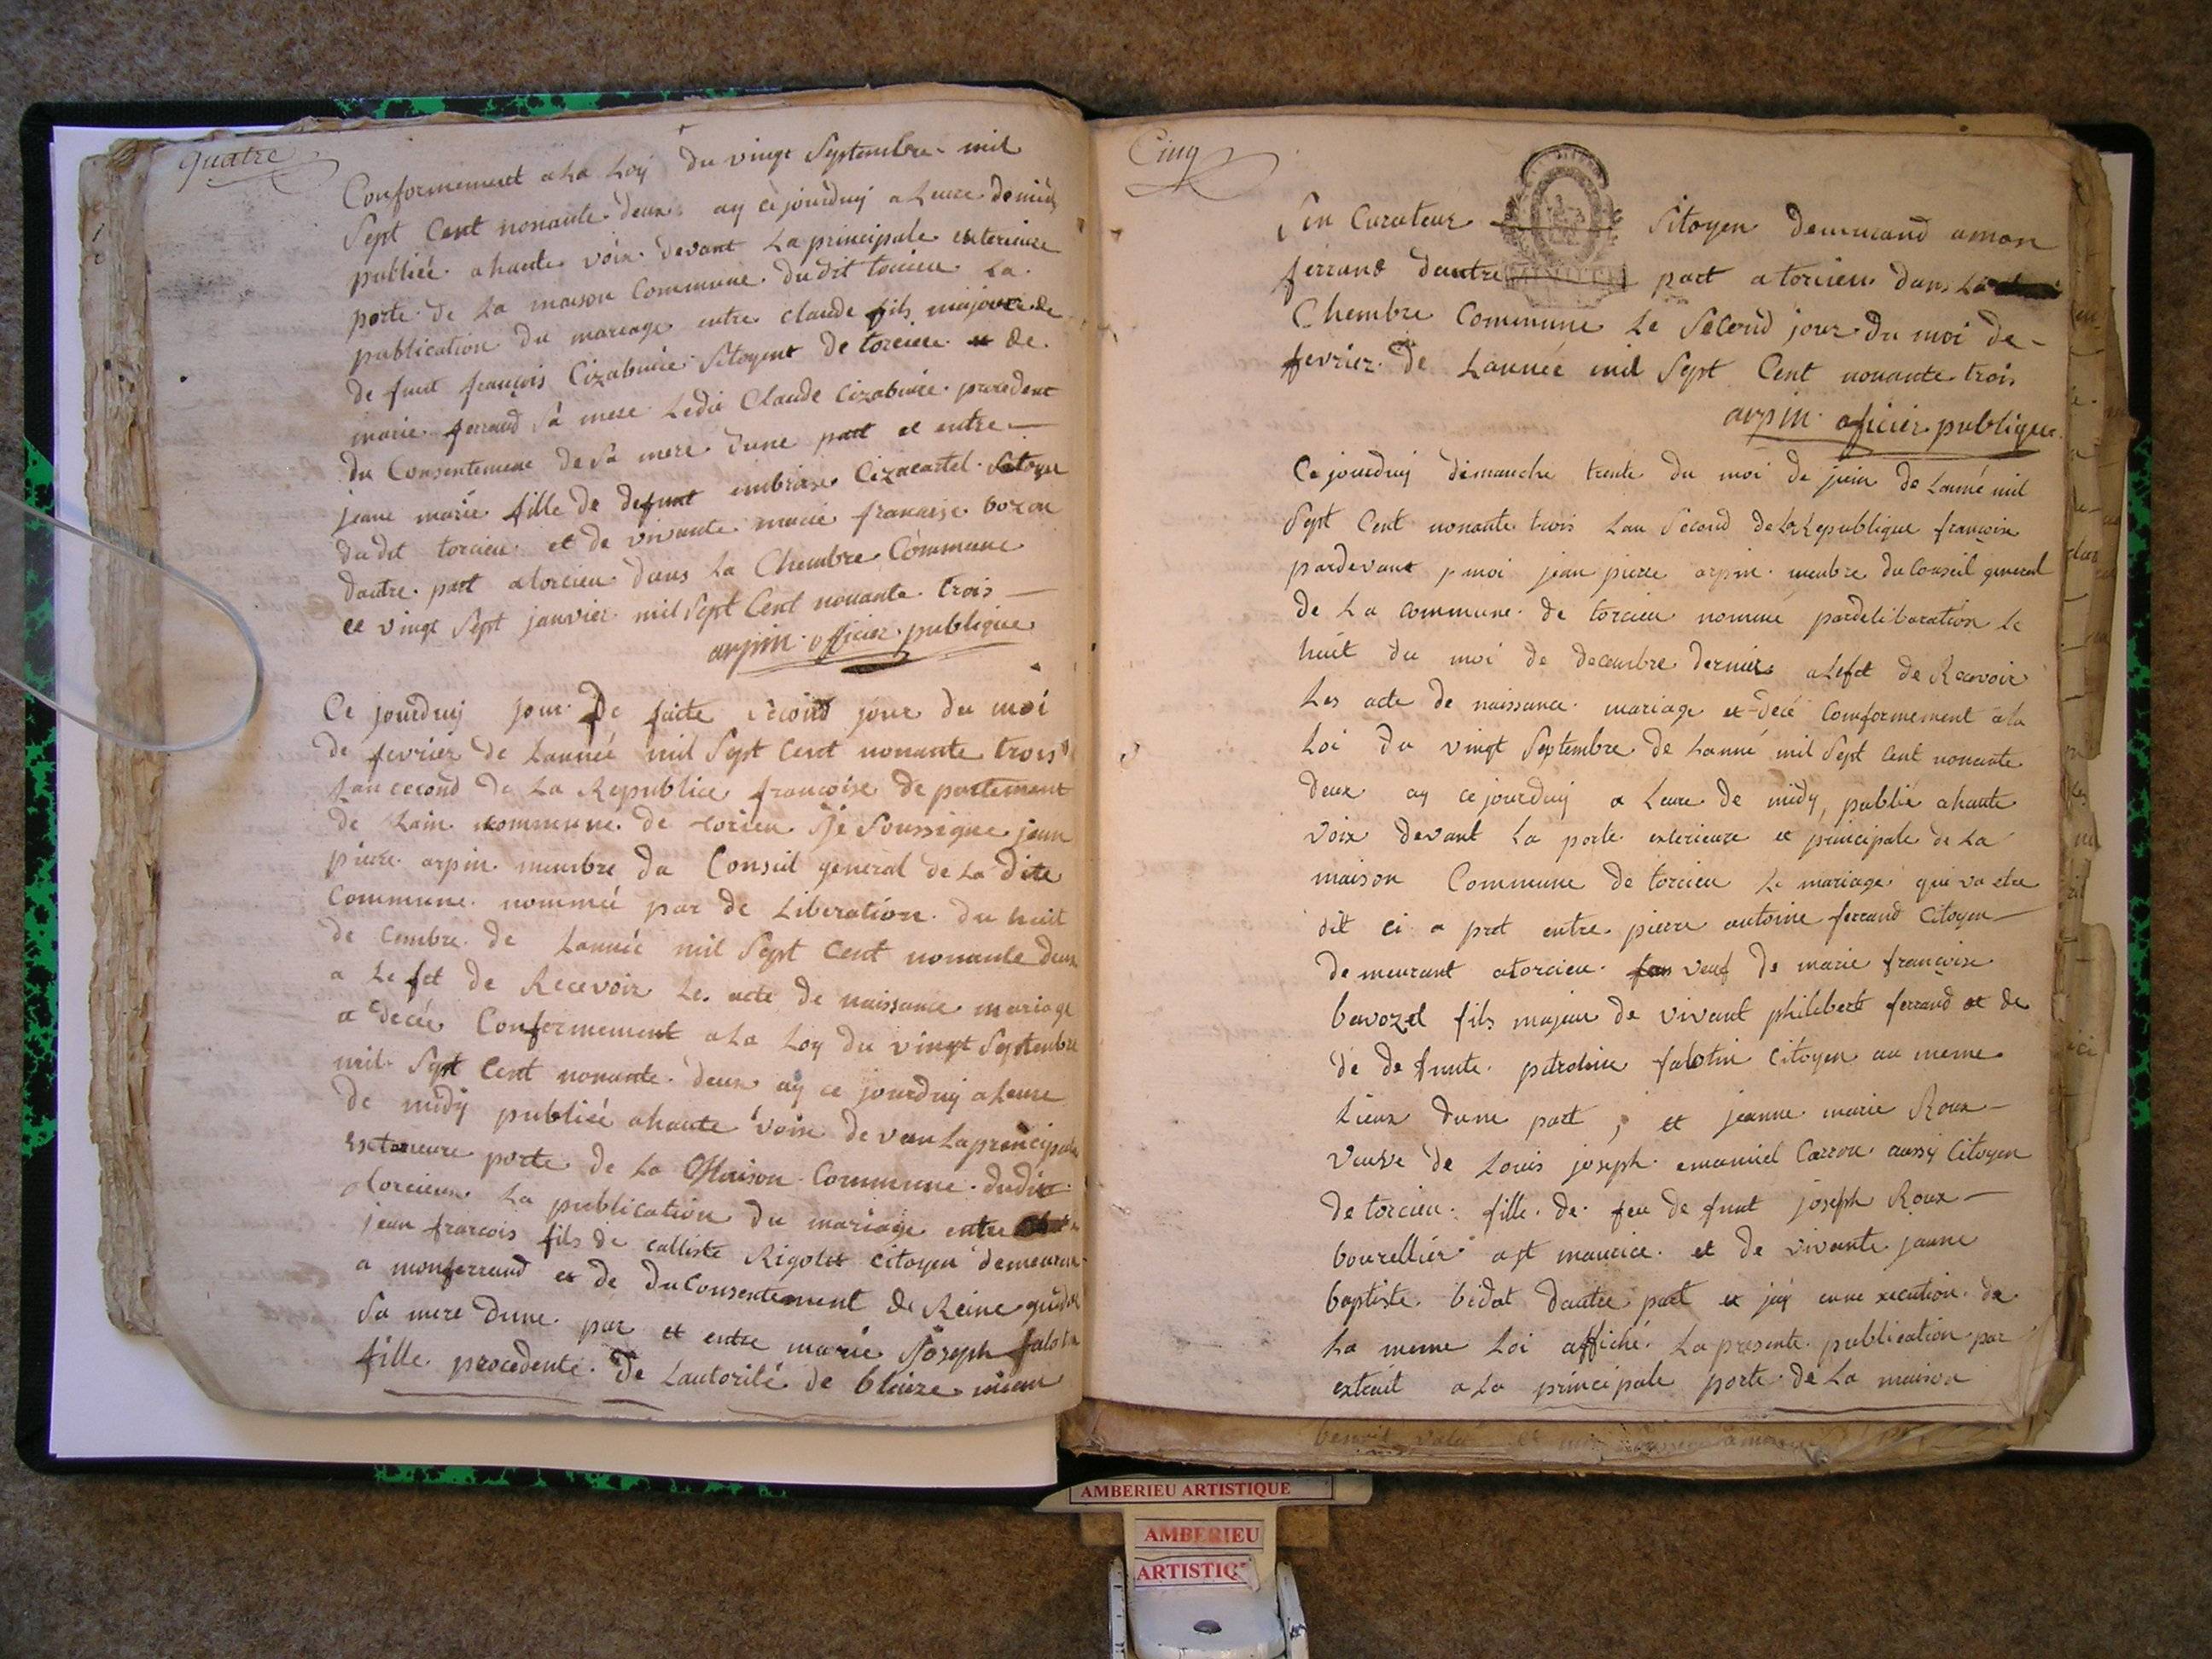 quatre
Conformement a la Loy du vingt Septembre mil
Sept Cent nonante deux ay ce jourduy a Leure de midy
publiée a haute voix devant La principale exterieure
porte de La maison Commune dudit torcieu La
publication du mariage entre claude fils majeure de
de funt françois Cizabuire Sitoyent de torcieu et de
marie ferrand Sa mere Ledit Claude Cizabuire procedent
du Consentement de Sa mere dune part et entre
jeane marie fille de defunt embroise Cizacartel Sitoyen
du dit torcieu et de vivante marie francoise bozon
dautre part a torcieu dans La Chembre Commune
ce vingt Sept janvier mil Sept Cent nonante trois
arpin officier publique
Ce jourduy jour de faite second jour du moi
de fevrier de Lannée mil Sept Cent nonante trois
Lan cecond de La Republice francoise de partement
de Lain commune de torcieu Je Soussigne jean
pierre arpin menbre du Conseil general de La dite
Commune nommé par de Liberation du huit
de cembre de Lannée mil Sept Cent nonante deux
a Lefet de Recevoir Les acte de naissance mariage
et decée Conformement a La Loy du vingt Septembre
mil Sept Cent nonante deux ay ce jourduy a Leure
de midy publiée a haute voix de van La principale
Exterieure porte de La Maison Commune dudit
torcieux La publication du mariage entre
jean francois fils de calliste Rigolet citoyen demeurant
a monferrand et de du Consentement de Reine
Sa mere dune par et entre marie Joseph falotin
fille procedente de Lautorité de blaize
Cinq
Son Curateur Sitoyen demeurand amon
ferrand dautre part a torcieu dans La
Chembre Commune Le Second jour du moi de
fevrier de Lannée mil Sept Cent nonante trois
arpin oficier publique
Ce jourduy dimanche trente du moi de juin de Lanné mil
Sept Cent nonante trois Lan Second de La Republique françoise
pardevant moi jean pierre arpin menbre du Conseil general
de La commune de torcieu nommé pardeliberation Le
huit du moi de decembre dernier a Lefet de Recevoir
Les acte de naissance mariage et decé Comformement a la
Loi du vingt Septembre de Lanné mil Sept Cent nonante
deux ay ce jourduy a Leure de midy, publié a haute
voix devant La porte exterieure et principale de La
maison Commune de torcieu Le mariage qui va etre
dit ci a pret entre pierre antoine ferrand Citoyen
demeurant a torcieu veuf de marie françoise
bevozet fils majeur de vivant philibert ferrand et de
de de funte petroline falotin Citoyen au meme
Lieux dune part, et jeanne marie Roux
veuve de Louis joseph emaniel Carron aussy Citoyen
de torcieu fille de feu de funt joseph Roux
bourellier a st maurice et de vivante jeanne
baptiste bidat dautre part et jay enne xecution de
La meme Loi affiché La presente publication par
extrait a La principale porte de La maison
AMBERIEU ARTISTIQUE
AMBERIEU
ARTISTIQ